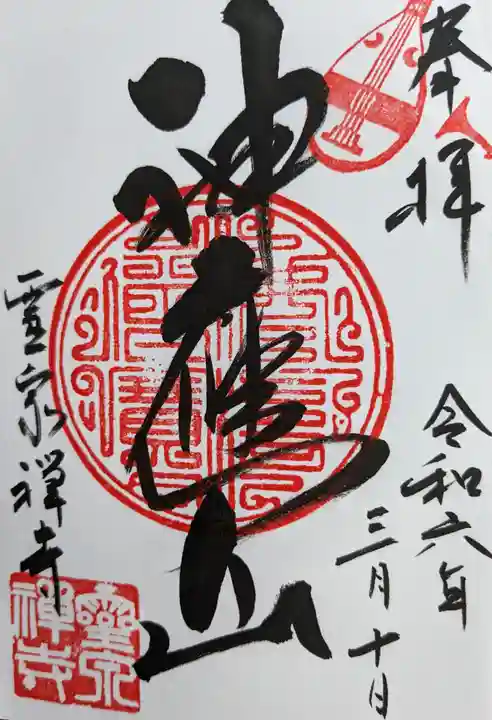 奉拝
令和六年
三月十日
神應山
霊泉禅寺
靈泉
禪寺